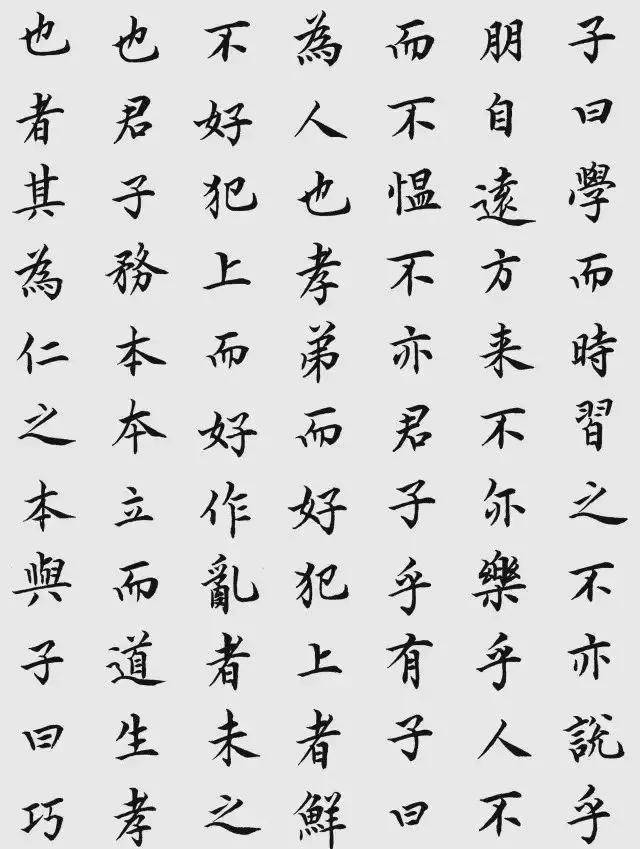 子曰學而時習之不亦說乎
朋自遠方来不亦樂乎人不
而不愠不亦君子乎有子曰
為人也孝弟而好犯上者鮮
不好犯上而好作亂者未之
也君子務本本立而道生孝
也者其為仁之本與子曰巧